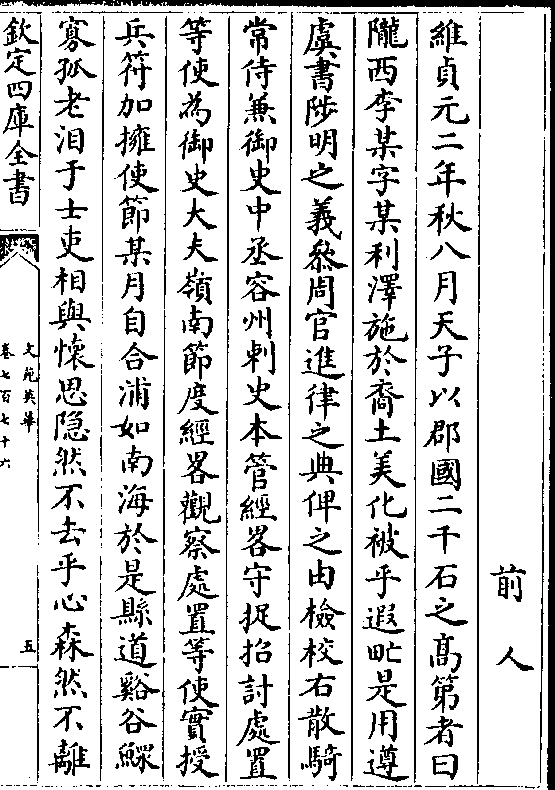 前人
維貞元二年秋八月天子以郡國二千石之髙第者曰
隴西李某字某利澤施於裔土美化被乎遐甿是用遵
虞書陟明之義叅周官進律之典俾之由檢校右散騎
常侍兼御史中丞容州刺史本管經畧守捉招討處置
等使為御史大夫嶺南節度經畧觀察處置等使實授
兵符加擁使節某月自合浦如南海於是縣道谿谷鰥
寡孤老洎于士吏相與懷思隠然不去乎心森然不離
欽定四庫全書
文苑英華
卷七百七十六
五